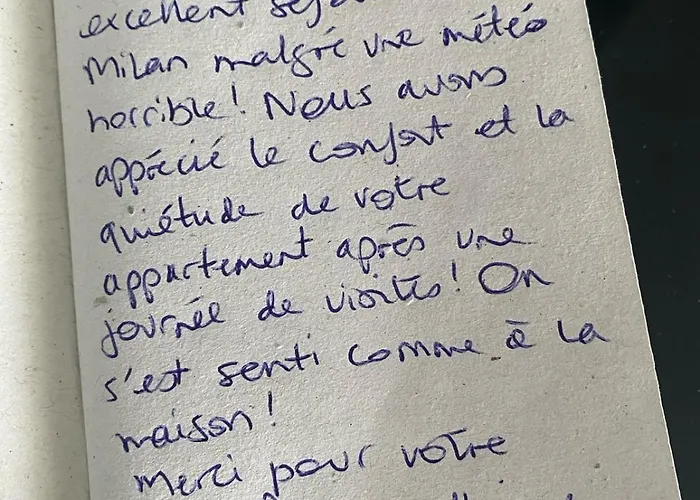 excellent séjour
Milan malgré une météo
horrible! Nous avons
apprécié le confort et la
quiétude de votre
appartement après une
journée de visites! On
s'est senti comme à la
maison!
Merci pour votre